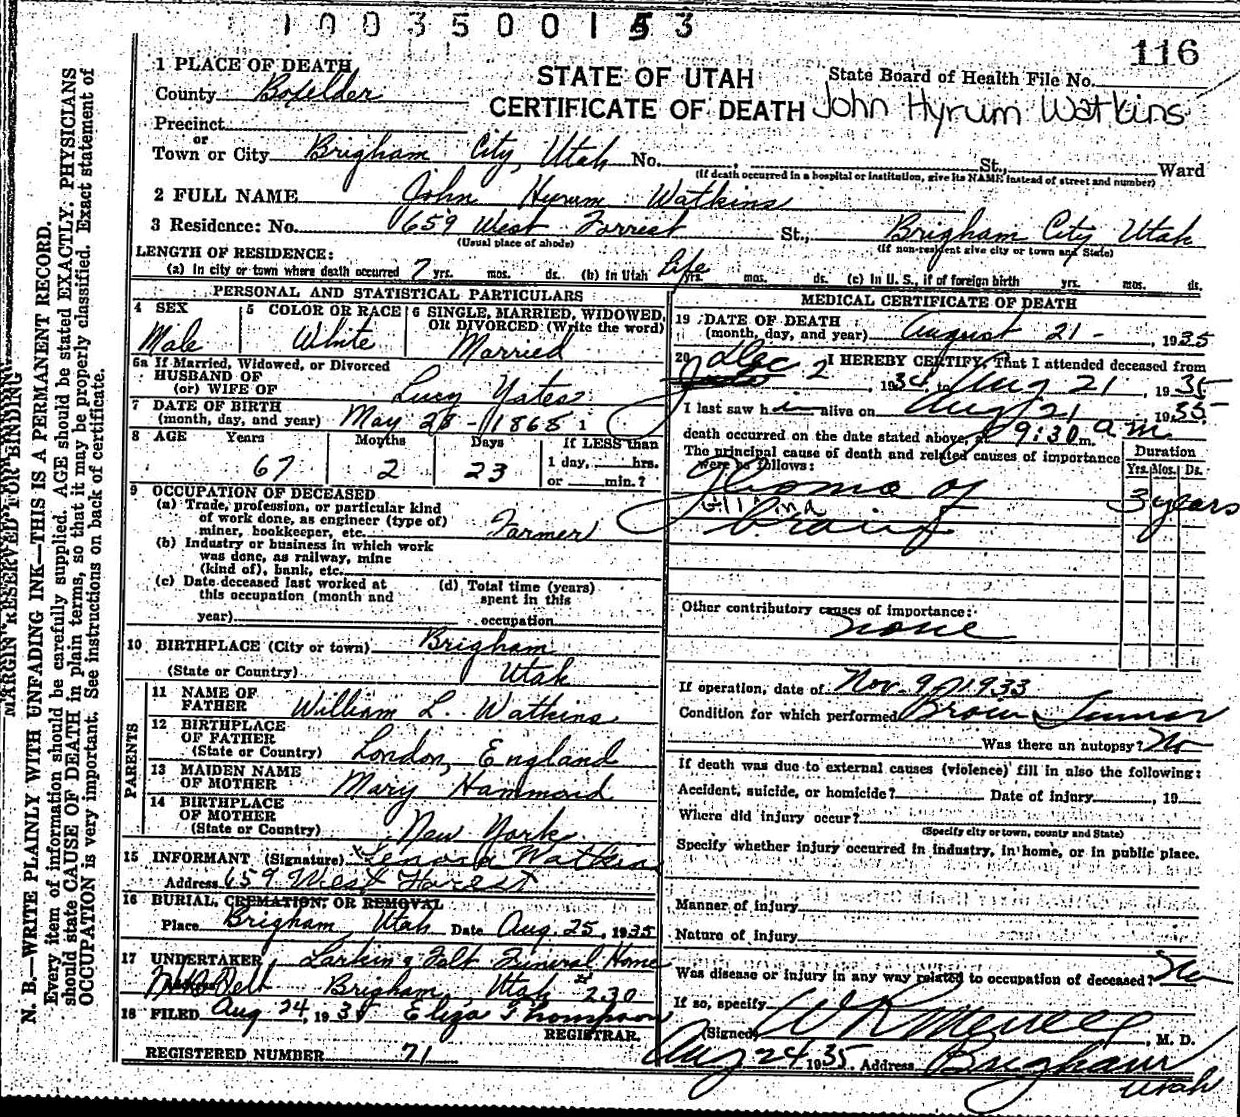 1003500153
116
1 PLACE OF DEATH
STATE OF UTAH
State Board of Health File No.
County Boxelder
CERTIFICATE OF DEATH John Hyrum Watkins
Precinct
or
Town or City Brigham City, Utah No. , St., Ward
(If death occurred in a hospital or institution, give its NAME instead of street and number)
2 FULL NAME John Hyrum Watkins
3 Residence: No. 659 West Forrest St., Brigham City Utah
(Usual place of abode) (If non-resident give city or town and State)
LENGTH OF RESIDENCE:
(a) In city or town where death occurred 7 yrs. mos. ds. (b) In Utah Life yrs. mos. ds. (c) In U. S., if of foreign birth yrs. mos. ds.
PERSONAL AND STATISTICAL PARTICULARS
4 SEX
Male
5 COLOR OR RACE
White
6 SINGLE, MARRIED, WIDOWED,
OR DIVORCED (Write the word)
Married
6a If Married, Widowed, or Divorced
HUSBAND OF
(or) WIFE OF Lucy Yates
7 DATE OF BIRTH
(month, day, and year) May 28 - 1868 1
8 AGE Years Months Days If LESS than
67 2 23 1 day, hrs.
or min.?
9 OCCUPATION OF DECEASED
(a) Trade, profession, or particular kind
of work done, as engineer (type of)
miner, bookkeeper, etc. Farmer
(b) Industry or business in which work
was done, as railway, mine
(kind of), bank, etc.
(c) Date deceased last worked at
this occupation (month and
year)
(d) Total time (years)
spent in this
occupation
10 BIRTHPLACE (City or town) Brigham
(State or Country) Utah
PARENTS
11 NAME OF
FATHER William L. Watkins
12 BIRTHPLACE
OF FATHER
(State or Country) London, England
13 MAIDEN NAME
OF MOTHER Mary Hammond
14 BIRTHPLACE
OF MOTHER
(State or Country) New York
15 INFORMANT (Signature) Lenora Watkins
Address 659 West Forest
16 BURIAL, CREMATION, OR REMOVAL
Place Brigham, Utah Date Aug. 25, 1935
17 UNDERTAKER Larkin & Felt Funeral Home
Brigham, Utah 230
18 FILED Aug 24, 193 Eliza Thompson
REGISTRAR.
REGISTERED NUMBER 71
MEDICAL CERTIFICATE OF DEATH
19 DATE OF DEATH
(month, day, and year) August 21 - , 1935
20 I HEREBY CERTIFY, That I attended deceased from
Dec 2, 1934, to Aug 21, 1935
I last saw him alive on Aug 21 1935
death occurred on the date stated above, at 9:30 m. a m
The principal cause of death and related causes of importance
were as follows:
Duration
Yrs. Mos. Ds.
Glioma of
brain
3 years
Other contributory causes of importance:
none
If operation, date of Nov. 9, 1933
Condition for which performed Brain Tumor
Was there an autopsy? No
If death was due to external causes (violence) fill in also the following:
Accident, suicide, or homicide? Date of injury , 19
Where did injury occur?
(Specify city or town, county and State)
Specify whether injury occurred in industry, in home, or in public place.
Manner of injury
Nature of injury
Was disease or injury in any way related to occupation of deceased? No
If so, specify
(Signed) , M. D.
Aug 24 1935. Address Brigham
Utah
MARGIN RESERVED FOR BINDING
N. B.—WRITE PLAINLY WITH UNFADING INK—THIS IS A PERMANENT RECORD.
Every item of information should be carefully supplied. AGE should be stated EXACTLY. PHYSICIANS
should state CAUSE OF DEATH in plain terms, so that it may be properly classified. Exact statement of
OCCUPATION is very important. See instructions on back of certificate.